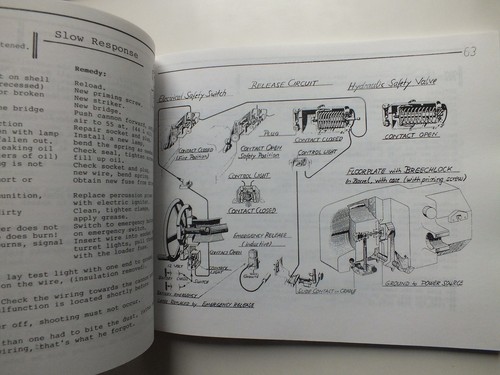 Slow Response
tened.
Remedy:
t on shell
Reload.
recessed)
New priming screw.
or broken
New striker.
New bridge.
e bridge
Push cannon forward,
ction
air to 55 at.
n with lamp
Repair socket or
fallen out,
Install a new lamp,
king oil
bend the spring out
ers of oil)
Check seal, tighten
g is not
fill up oil.
Check socket and pin,
new wire, bend spring.
ort or
Obtain new fuse from
unition,
Replace percussion prime
with electric igniti
dirty
Clean, tighten risen
apply grease.
er does not
Switch to emergency
does burn)
on emergency switch.
urns, signal
Insert wire into
turret lights, pull
with the loader
lay test light with one end to ground
on the wire, (insulation removed)
Check the wiring towards the
lfunction is located shortly before
r off, shooting must not occur.
than one had to bite the dust,
wiring, that's what he forgot.
63
Electrical Safety Switch
RELEASE CIRCUIT
Hydraulic Safety Valve
CONTACT CLOSED
(Fire Position)
CONTACT OPEN
Safety Position
PLUG
CONTACT CLOSED
CONTROL LIGHT
CONTACT OPEN
CONTROL LIGHT
CONTACT CLOSED
FLOORPLATE with BREECHLOCK
In Barrel, with case (with priming screw)
EMERGENCY RELEASE
(inductive)
CONTACT OPEN
12 VOLT
CONTROL
LIGHT
SWITCH
SLIDE CONTACT - CRADLE
GROUND to POWER SOURCE
BATTERY EMERGENCY
Later Replaced by EMERGENCY RELEASE